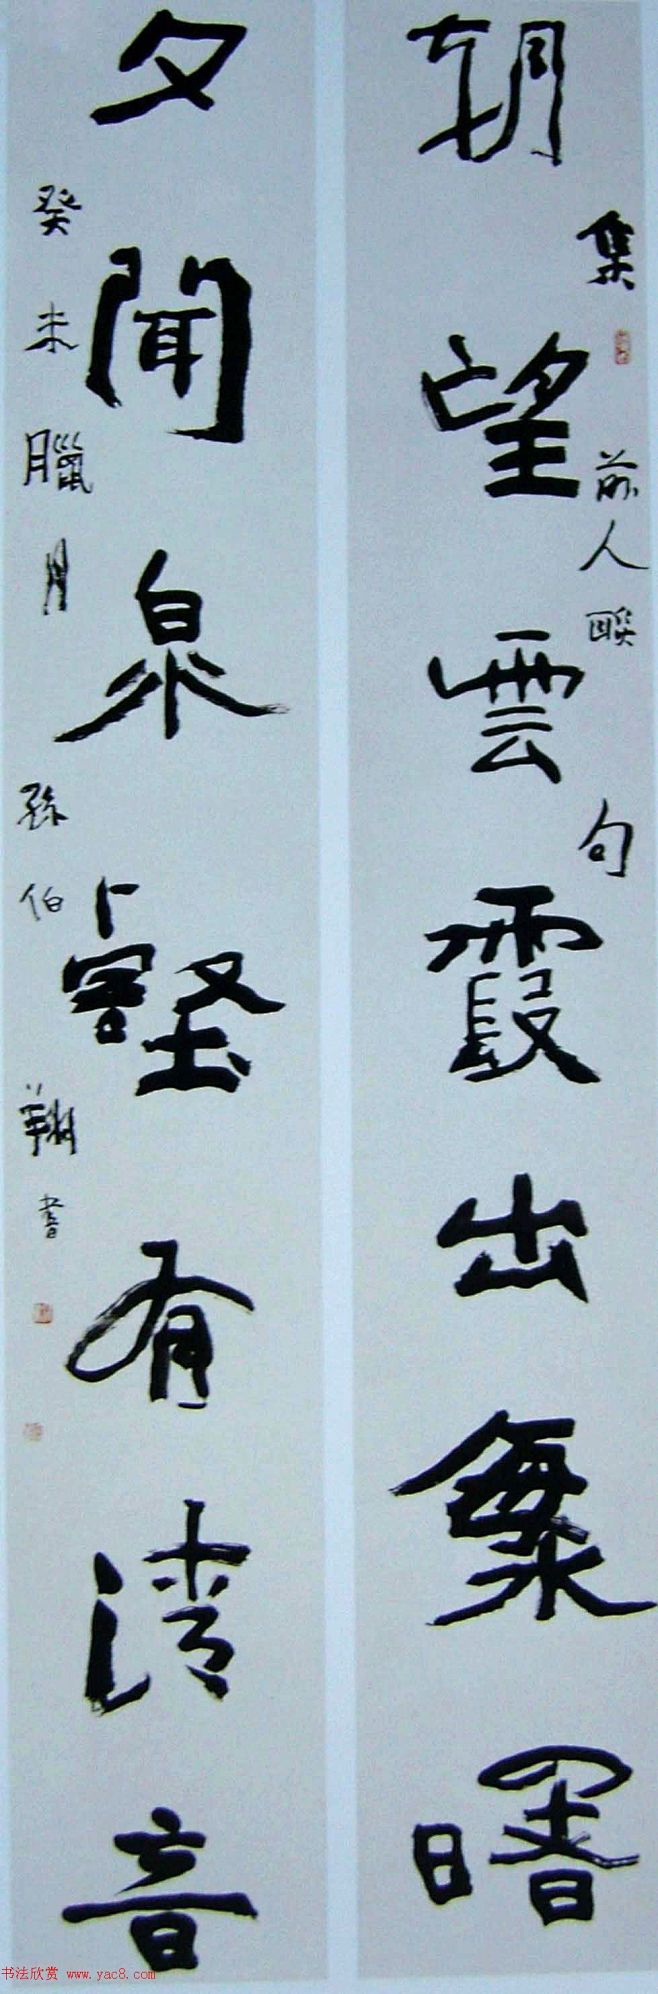 朝望雲霞出海曙
集前人聯句
夕聞泉壑有清音
癸未臘月孫伯翔書
书法欣赏 www.yac8.com